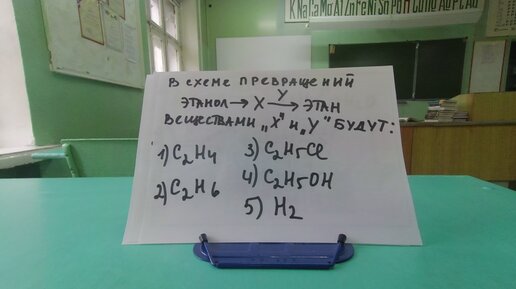 K Na Ca Mg Al Zn Fe Ni Sn Pb H Cu
В схеме превращений
этанол → X Y → этан
веществами „X" и „Y" будут:
1) C2H4
2) C2H6
3) C2H5Cl
4) C2H5OH
5) H2